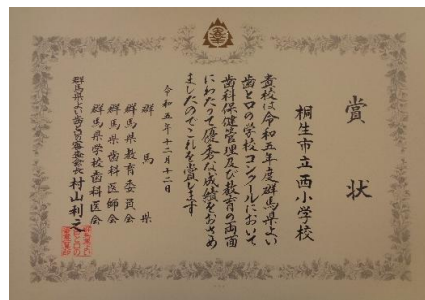 賞状
桐生市立西小学校
貴校は令和五年度群馬県よい
歯と口の学校コンクールにおいて
歯科保健管理及び教育の両面
にわたって優秀な成績をおさめ
ましたのでこれを賞します
令和五年十二月十二日
群馬県
群馬県教育委員会
群馬県歯科医師会
群馬県学校歯科医会
村山利之